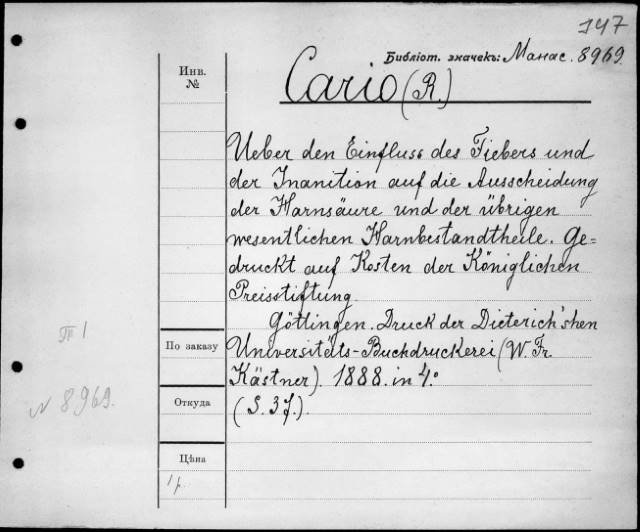 147
Библіот. значекъ: Манас. 8969.
Инв.
№
Cario (R.)
Ueber den Einfluss des Fiebers und
der Inanition auf die Ausscheidung
der Harnsäure und der übrigen
wesentlichen Harnbestandtheile. Ge-
druckt auf Kosten der Königlichen
Preisstiftung.
Göttingen. Druck der Dieterich'shen
По заказу
Universitäts-Buchdruckerei (W. Fr.
Kästner). 1888. in 4.°
Откуда
(S. 37).
Цѣна
1 р.
П 1
№ 8969.